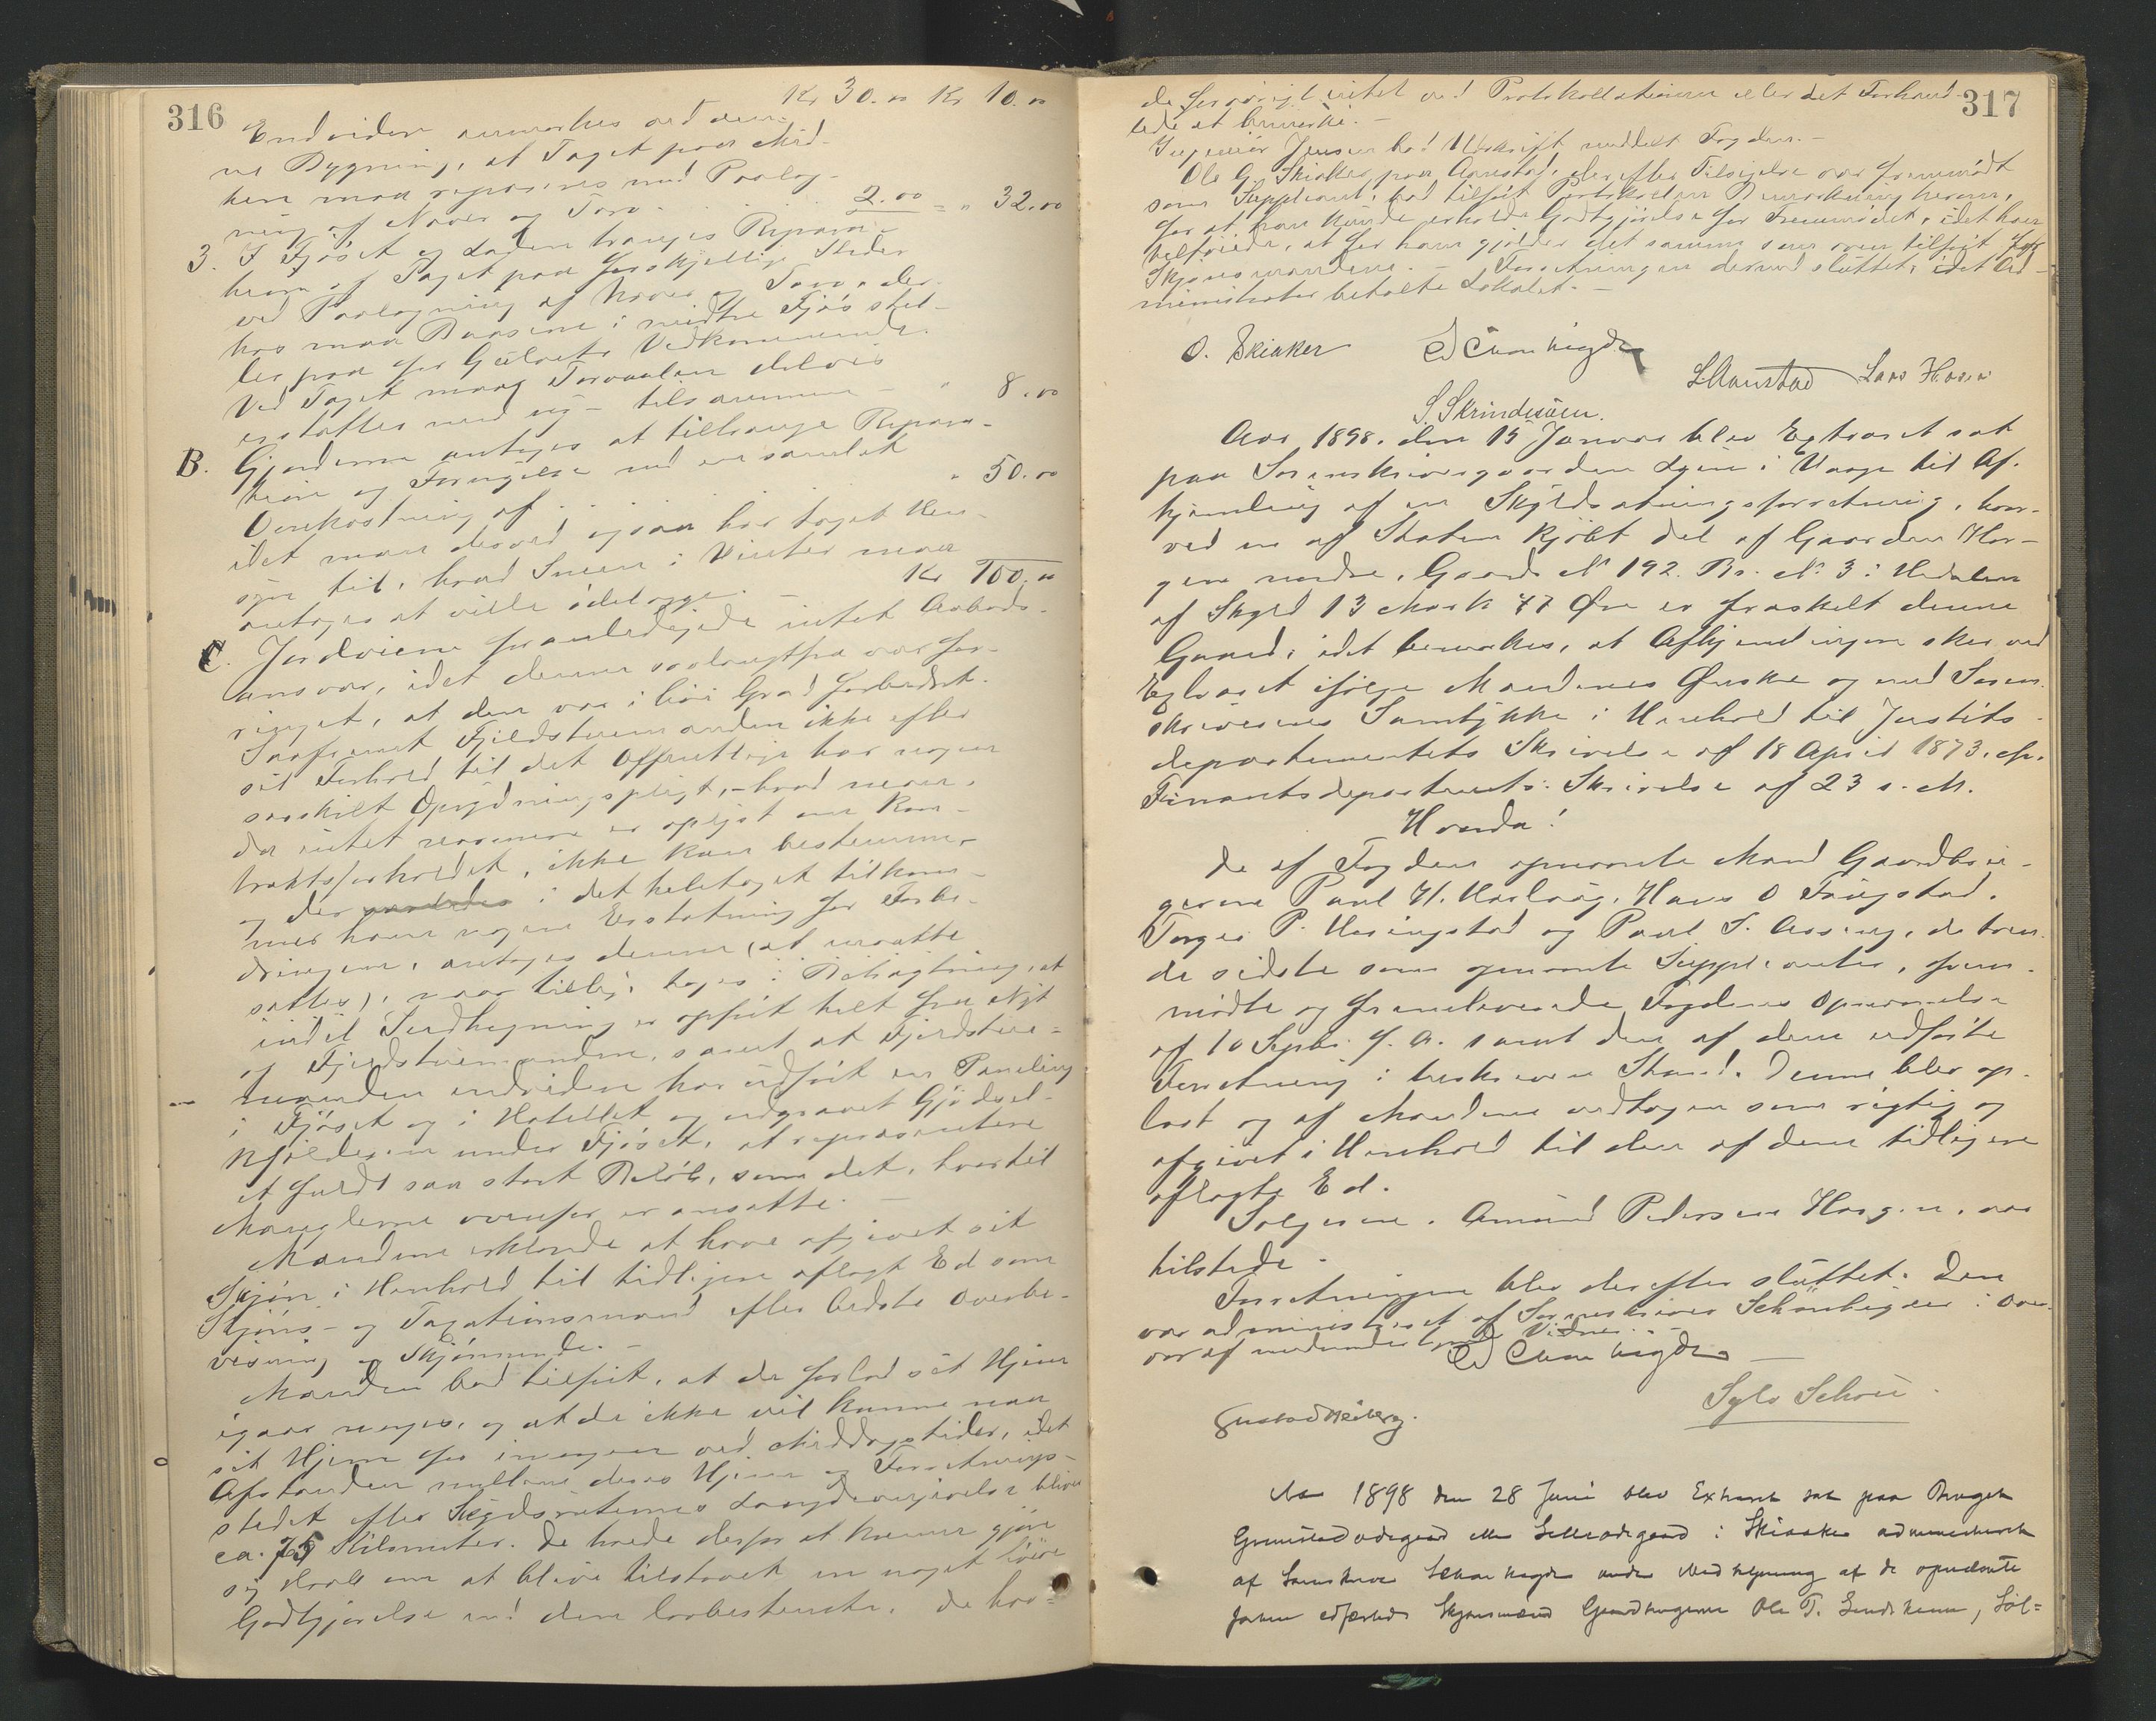 316
Kr 30.00 Kr 10.00
Endvidere anmærkes ved den-
ne Bygning, at Taget paa
hen maa repareres med Paalæg-
ning af Næver og Torv . . . 2.00 = " 32.00
3. I Fjøset og Laden trænges Repara-
tion af Taget paa forskjellige Steder
ved Paalægning af Næver og Torv, der-
hos maa Baasene i nedre Fjøs stel-
les paa for Gulvets Vedkommende.
Ved Taget maa Torvvolen delvis
erstattes med ny - tilsammen - " 8.00
B. Gjerderne antages at tiltrænge Repara-
tion og Fornyelse med en samlet
Omkostning af . . . " 50.00
idet man derved ogsaa har taget Hen-
syn til, hvad Sneen i Vinter maa
antages at ville ødelægge. Kr 100.00
C. Jordveiene foranledigede intet Aabods-
ansvar, idet denne saalangtfra var for-
ringet, at den var i høi Grad forbedret.
Saafremt Fjeldstuemanden ikke efter
sit Forhold til det Offentlige har nogen
særskilt Oprydningspligt, - hvad man,
da intet nærmere er oplyst om Kon-
traktsforholdet, ikke kan bestemme,
og der i det heletaget tilkom-
mer ham nogen Erstatning for Forbe-
dringen, antages denne (at ansatte
sættes), naar tillige tages i Betragtning, at
endel Indhegning er opført helt fra Nyt
af Fjeldstuemanden, samt at Fjeldstue-
manden endvidere har udført en Paneling
i Fjøset og i Hotellet og udgravet Gjødsel-
kjelderen under Fjøset, at repræsentere
et fuldt saa stort Beløb, som det, hvortil
Manglerne ovenfor er ansatte. -
Mændene erklærede at have afgivet sit
Skjøn i Henhold til tidligere aflagt Ed som
Skjøns- og Taxationsmænd efter bedste Overbe-
visning og Skjønnende. -
Mændene bad tilført, at de forlod sit Hjem
igaar morges, og at de ikke vil kunne naa
sit Hjem før imorgen ved Middagstider, idet
Afstanden mellem deres Hjem og Forretnings-
stedet efter Skydsruternes Længdeangivelse bliver
ca. 75 Kilometer. De troede derfor at kunne gjøre
sig Haab om at blive tilstaaet en noget høiere
Godtgjørelse end den lovbestemte. De hav-
317
de forøvrigt intet ved Protokollationen eller det Forhand-
lede at bemærke. -
Ingeniør Jensen bad Udskrift meddelt Fogden. -
Ole G. Skiaker paa Aanstad, der efter Tilsigelse var fremmødt
som Suppleant, bad tilført Protokollen Bemærkning herom,
for at han kunde erholde Godtgjørelse for Fremmødet, idet han
tilføiede, at for ham gjelder det samme som oven tilført for
Skjønsmændene. - Forretningen dermed sluttet, idet Ad-
ministrator betalte Lokalet. -
O. Skiaker
L Aanstad Lars Hosar
S. Skrindsveen.
Aar 1898. den 15 Januar blev Extraret sat
paa Sorenskrivergaarden i Vaage til Af-
hjemling af en Skyldsætningsforretning, hvor-
ved en af Staten kjøbt Del af Gaarden Hor-
gen nordre, Gaards No 192. Br. No 3 i Hedalen
af Skyld 13 Mark 77 Øre er fraskilt denne
Gaard, idet bemærkes, at Afhjemlingen sker ved
Extraret ifølge Mændenes Ønske og med Soren-
skriverens Samtykke i Henhold til Justits-
departementets Skrivelse af 18 April 1873. cfr.
Finantsdepartements Skrivelse af 23 s. M.
Hvorda!
De af Fogden opnævnte Mænd Gaardbru-
gerne Paul H. Harlaug, Hans O
Torger P. og Paul S. , de tven-
de sidste som opnævnte Suppleanter, frem-
mødte og fremleverede Fogdens Opnævnelse
af 10 Septbr. f. A. samt den af dem udførte
Forretning i beskreven Stand. Denne blev op-
læst og af Mændene vedtagen som rigtig og
afgivet i Henhold til den af dem tidligere
aflagte Ed.
Sælgeren, Amund Pedersen Horgen, var
tilstede.
Forretningen blev derefter sluttet. Den
var administreret af Sorenskriver Schønheyder i Over-
vær af nedunderskrevne Vidner. -
Gustav Heiberg.
Sylo Schou
Aar 1898 den 28 Juni blev Extraret sat paa Bruget
Grimstadødegaard eller i Skiaker administreret
af Sorenskriver Schønheyder under Medhjelpning af de opnævnte
forhen edfæstede Skjønsmænd Gaardbrugerne Ole T. , Søl=